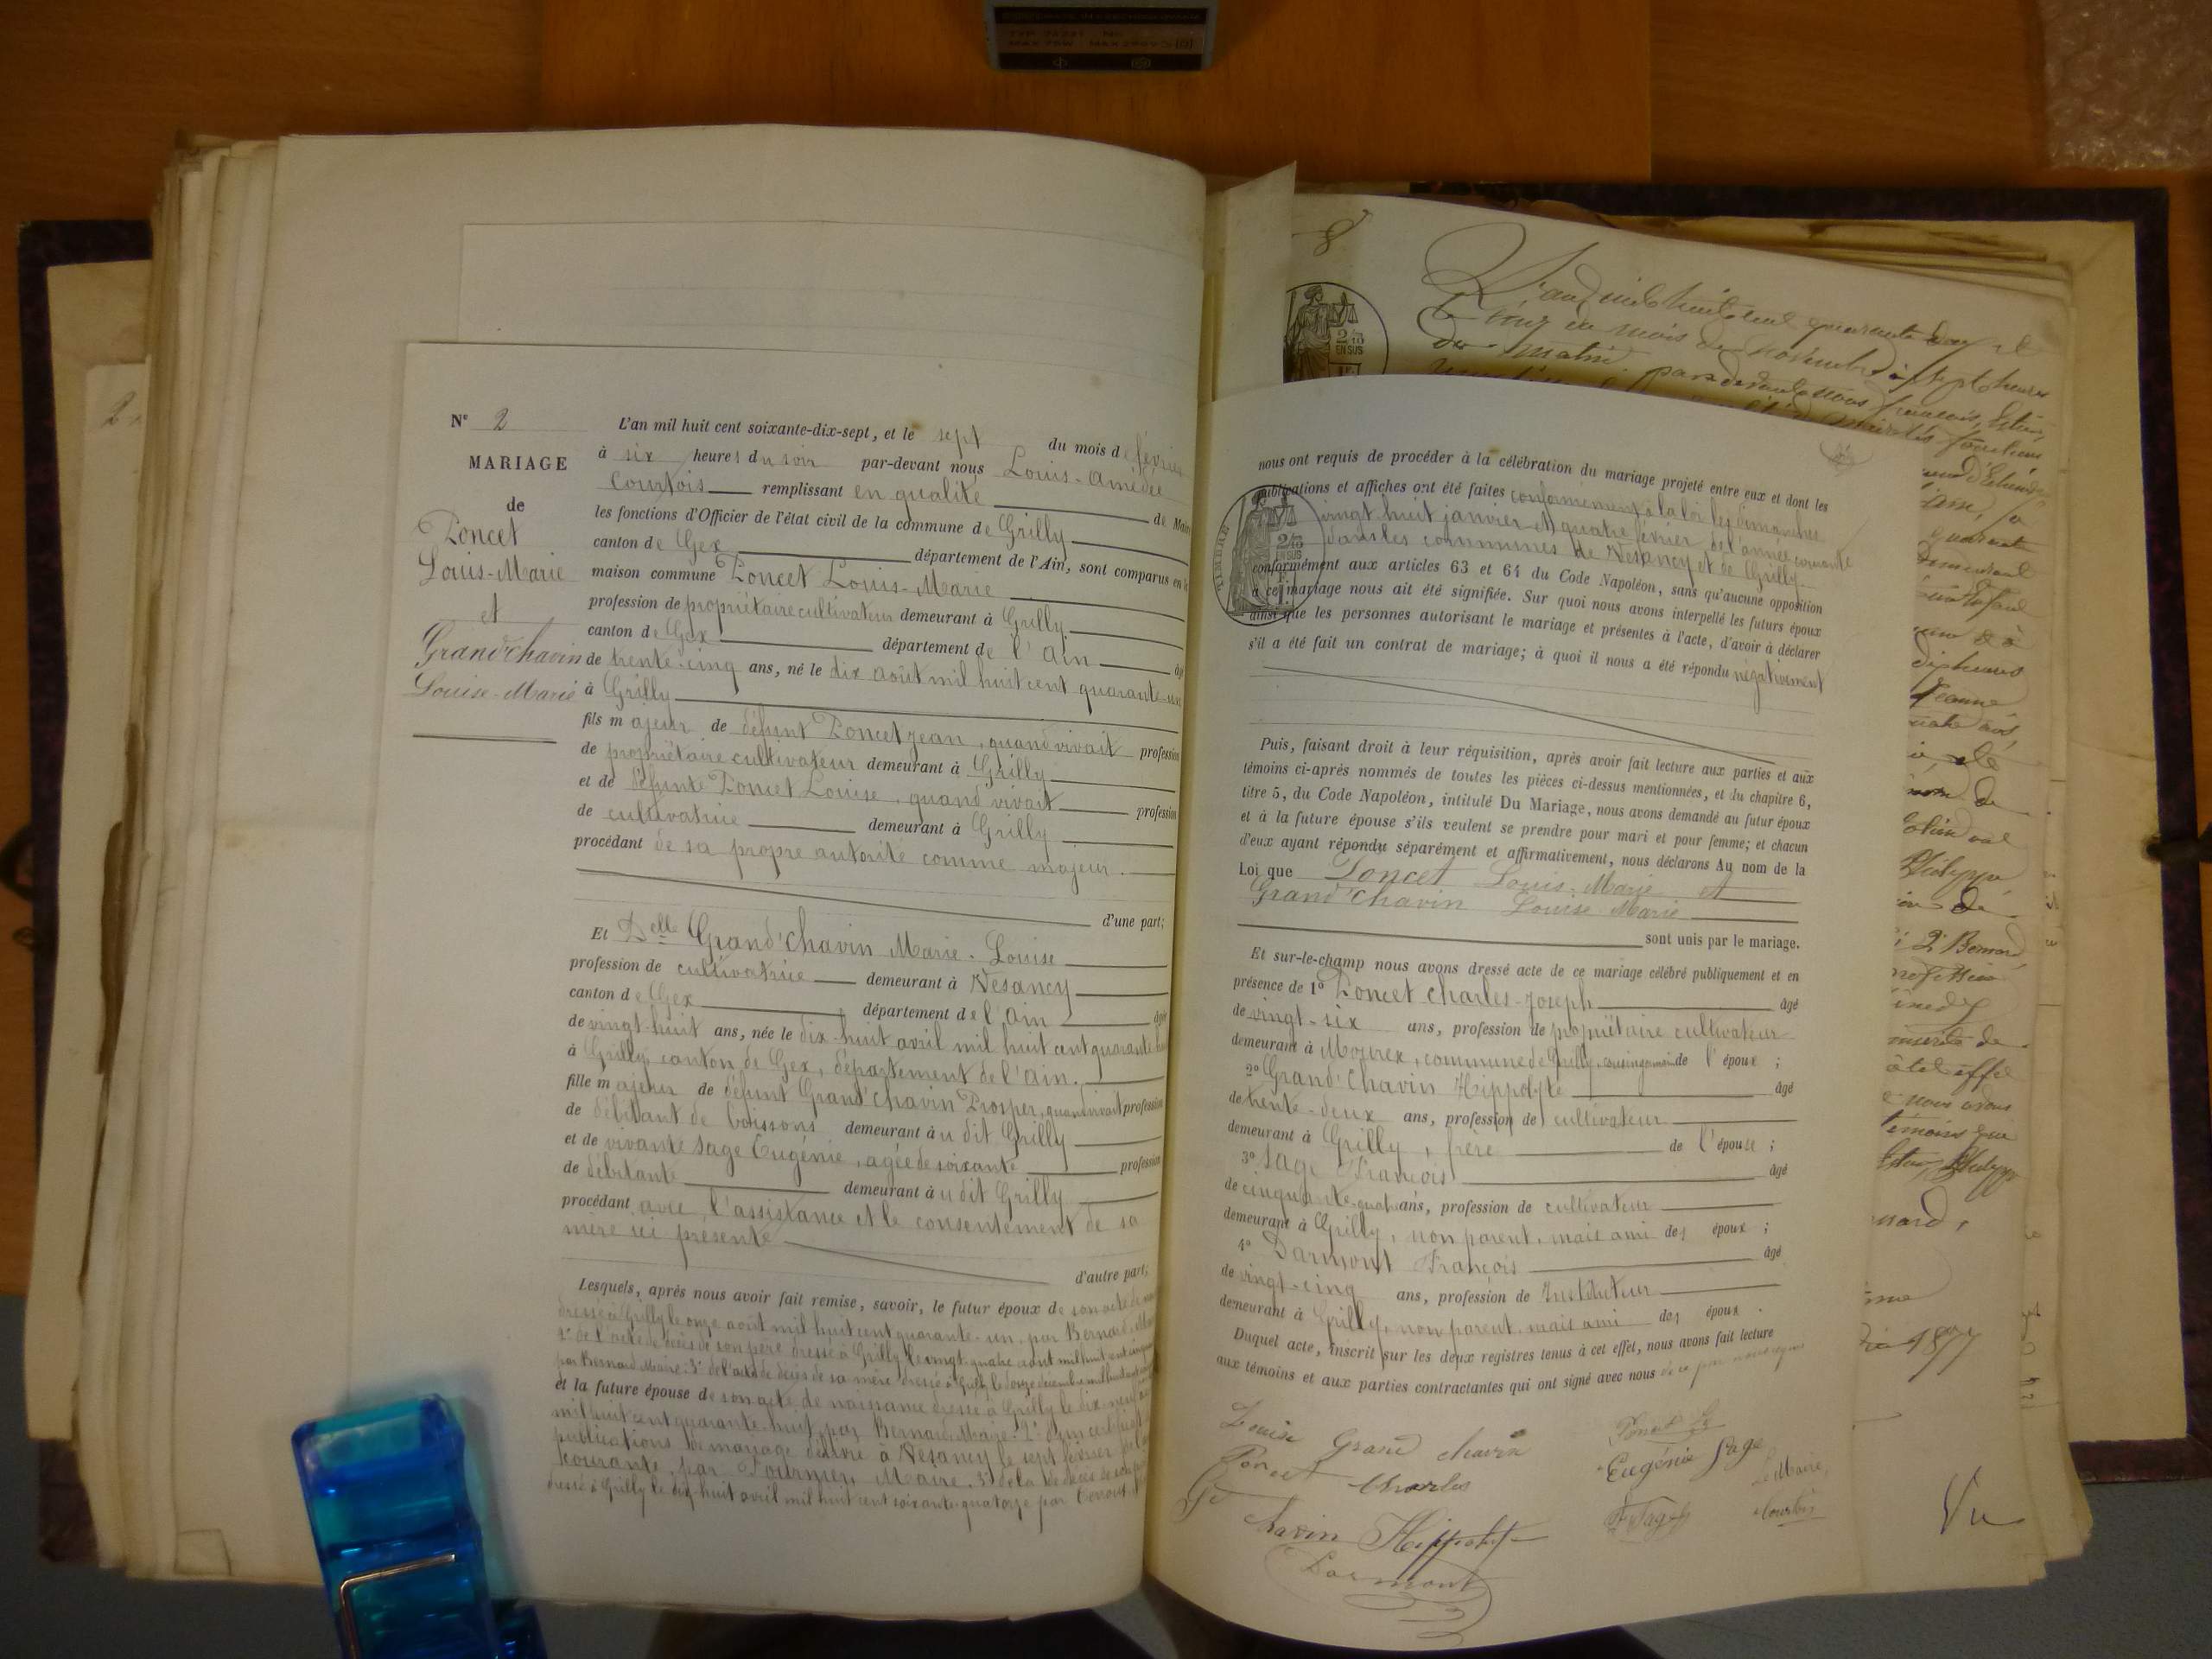 N° 2
MARIAGE
de
Poncet
Louis-Marie
et
Grand'chavin
Louise-Marie
L'an mil huit cent soixante-dix-sept, et le sept du mois de février
à six heures du soir par-devant nous Louis-Amédée
Courtois remplissant en qualité de Maire
les fonctions d'Officier de l'état civil de la commune de Grilly
canton de Gex département de l'Ain, sont comparus en la
maison commune Poncet Louis-Marie
profession de propriétaire cultivateur demeurant à Grilly
canton de Gex département de l'Ain âgé
de trente-cinq ans, né le dix août mil huit cent quarante-un
à Grilly
fils majeur de défunt Poncet Jean, quand vivait profession
de propriétaire cultivateur demeurant à Grilly
et de défunte Poncet Louise, quand vivait profession
de cultivatrice demeurant à Grilly
procédant de sa propre autorité comme majeur.
d'une part;
Et Delle Grand'chavin Marie-Louise
profession de cultivatrice demeurant à Vesancy
canton de Gex département de l'Ain âgée
de vingt-huit ans, née le dix-huit avril mil huit cent quarante-huit
à Grilly, canton de Gex, département de l'Ain.
fille majeur de défunt Grand'chavin Prosper, quand vivait profession
de débitant de boissons demeurant au dit Grilly
et de vivante Sage Eugénie, agée de soixante profession
de débitante demeurant au dit Grilly
procédant avec l'assistance et le consentement de sa
mère ici présente
d'autre part;
Lesquels, après nous avoir fait remise, savoir, le futur époux de son acte de
dressé à Grilly le onze août mil huit cent quarante-un, par Bernard, Maire
2° de l'acte de décès de son père dressé à Grilly le vingt-quatre août mil huit cent
par Bernard Maire; 3° de l'acte de décès de sa mère dressé à Grilly le douze décembre mil huit cent
et la future épouse de son acte de naissance dressé à Grilly le dix-neuf
mil huit cent quarante-huit, par Bernard Maire. 2° d'un certificat
publications de mariage délivré à Vesancy le sept février de l'
courante, par Fournier, Maire. 3° de la de décès de son
dressé à Grilly le dix-huit avril mil huit cent soixante-quatorze par
nous ont requis de procéder à la célébration du mariage projeté entre eux et dont les
publications et affiches ont été faites conformément à la loi les dimanches
vingt huit janvier et quatre février de l'année courante
dans les communes de Vesancy et de Grilly
conformément aux articles 63 et 64 du Code Napoléon, sans qu'aucune opposition
à ce mariage nous ait été signifiée. Sur quoi nous avons interpellé les futurs époux
ainsi que les personnes autorisant le mariage et présentes à l'acte, d'avoir à déclarer
s'il a été fait un contrat de mariage; à quoi il nous a été répondu négativement
Puis, faisant droit à leur réquisition, après avoir fait lecture aux parties et aux
témoins ci-après nommés de toutes les pièces ci-dessus mentionnées, et du chapitre 6,
titre 5, du Code Napoléon, intitulé Du Mariage, nous avons demandé au futur époux
et à la future épouse s'ils veulent se prendre pour mari et pour femme; et chacun
d'eux ayant répondu séparément et affirmativement, nous déclarons Au nom de la
Loi que Poncet Louis-Marie et
Grand'chavin Louise-Marie
sont unis par le mariage.
Et sur-le-champ nous avons dressé acte de ce mariage célébré publiquement et en
présence de 1° Poncet Charles-Joseph âgé
de vingt-six ans, profession de propriétaire cultivateur
demeurant à Mourex, commune de Grilly, cousin germain de l'époux;
2° Grand'chavin Hippolyte âgé
de trente-deux ans, profession de cultivateur
demeurant à Grilly, frère de l'épouse;
3° Sage François âgé
de cinquante-quatre ans, profession de cultivateur
demeurant à Grilly, non parent, mais ami des époux;
4° Darmont François âgé
de vingt-cinq ans, profession de Instituteur
demeurant à Grilly, non parent, mais ami des époux.
Duquel acte, inscrit sur les deux registres tenus à cet effet, nous avons fait lecture
aux témoins et aux parties contractantes qui ont signé avec nous
Louise Grand chavin
Poncet Charles
Gd Chavin Hippolyte
Darmont
Poncet
Eugénie Sage
F Sage
Le Maire,
Courtois
TIMBRE
2/10
EN SUS
8
2/10
EN SUS
L'an mil huit cent quarante
du mois de novembre à sept heures
du matin, par devant nous François,
1877
Vu